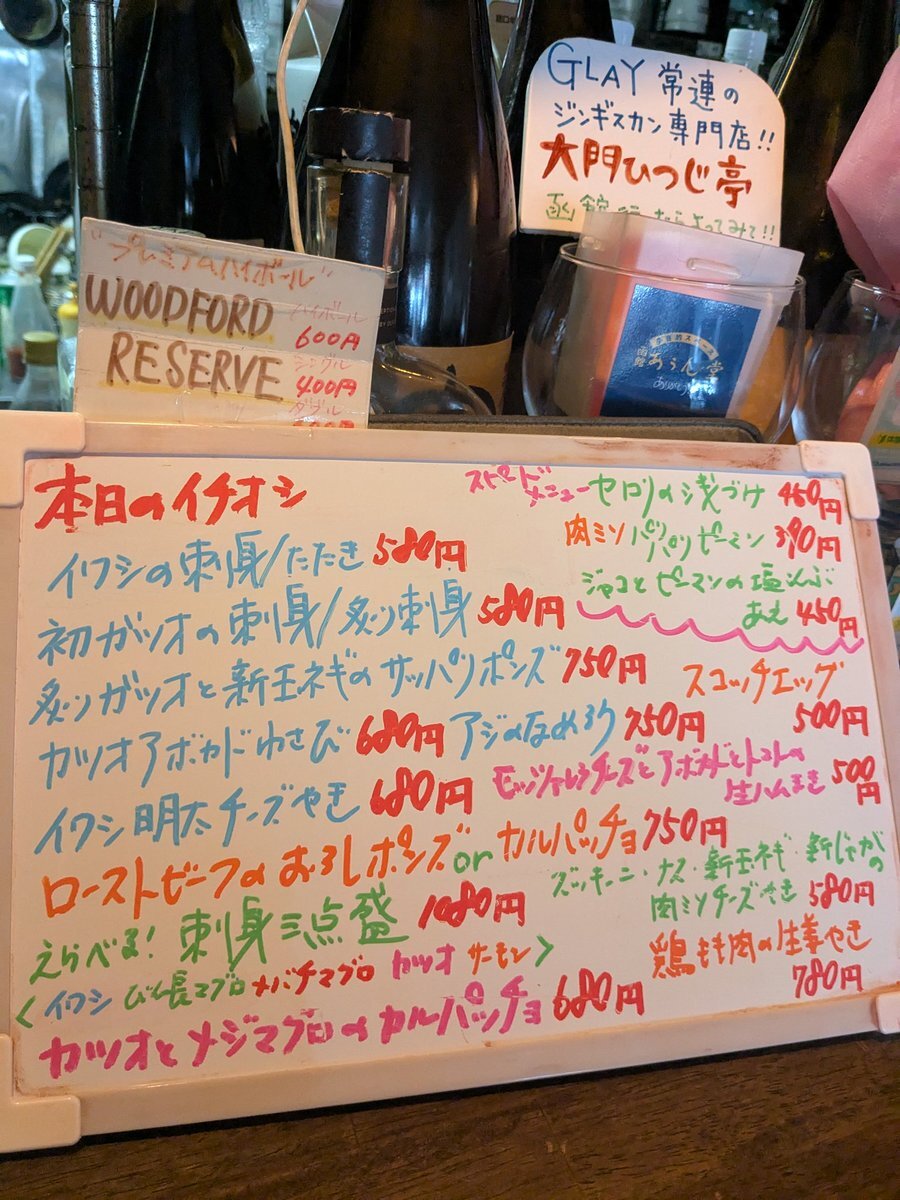 GLAY 常連の
ジンギスカン専門店!!
大門ひつじ亭
函館行ったらよってみて!!
"プレミアムハイボール"
WOODFORD
RESERVE
ハイボール
600円
シングル
400円
ダブル
函館
あらん堂
ありがとう
本日のイチオシ
イワシの刺身/たたき 580円
初ガツオの刺身/炙り刺身 580円
炙りガツオと新玉ネギのサッパリポンズ 750円
カツオアボカドわさび 680円
アジのなめろう 750円
イワシ明太チーズやき 680円
ローストビーフのおろしポンズ or カルパッチョ 750円
えらべる! 刺身三点盛 1080円
<イワシ びん長マグロ メバチマグロ カツオ サーモン>
カツオとメジマグロのカルパッチョ 680円
スピードメニュー
セロリの浅づけ 450円
肉ミソパリパリピーマン 390円
ジャコとピーマンの塩こんぶ
あえ 450円
スコッチエッグ
500円
モッツァレラチーズとアボカドとトマトの
生ハムまき 500円
ズッキーニ・ナス・新玉ネギ・新じゃがの
肉ミソチーズやき 580円
鶏もも肉の生姜やき
780円